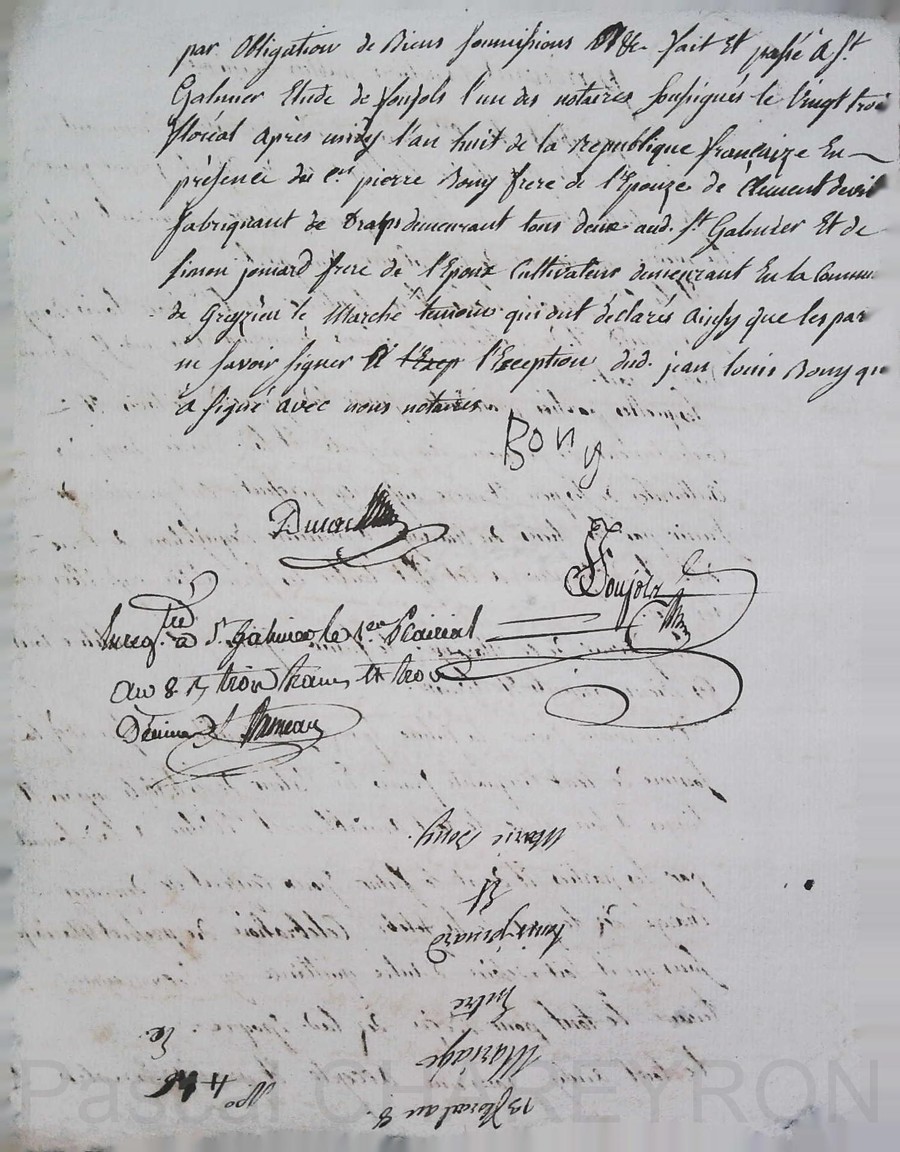 par Obligation de Biens soumissions &c. fait Et passé a St.
Galmier Etude de Soujols l'un des notaires soussignés le vingt trois
floréal après midy l'an huit de la republique françaize En
présence du cn. pierre Bony frere de l'Epouze de Clement
fabriquant de Draps demeurant tous deux aud. St Galmier Et de
simon jomard frere de l'Epoux Cultivateur demeurant En la Commu
de Greyzieu le Marché temoins qui ont déclarés ainsy que les par
ne savoir signer A l'Excep l'Exception dud. jean louis Bony qui
a signé avec nous notaires
Bony
Soujols
Enregtré a St. Galmier le 1er Prairial
an 8. R trois francs et trois
Décimes
23 floréal an 8.
Mariage
Entre
Et
Marie Bony
No